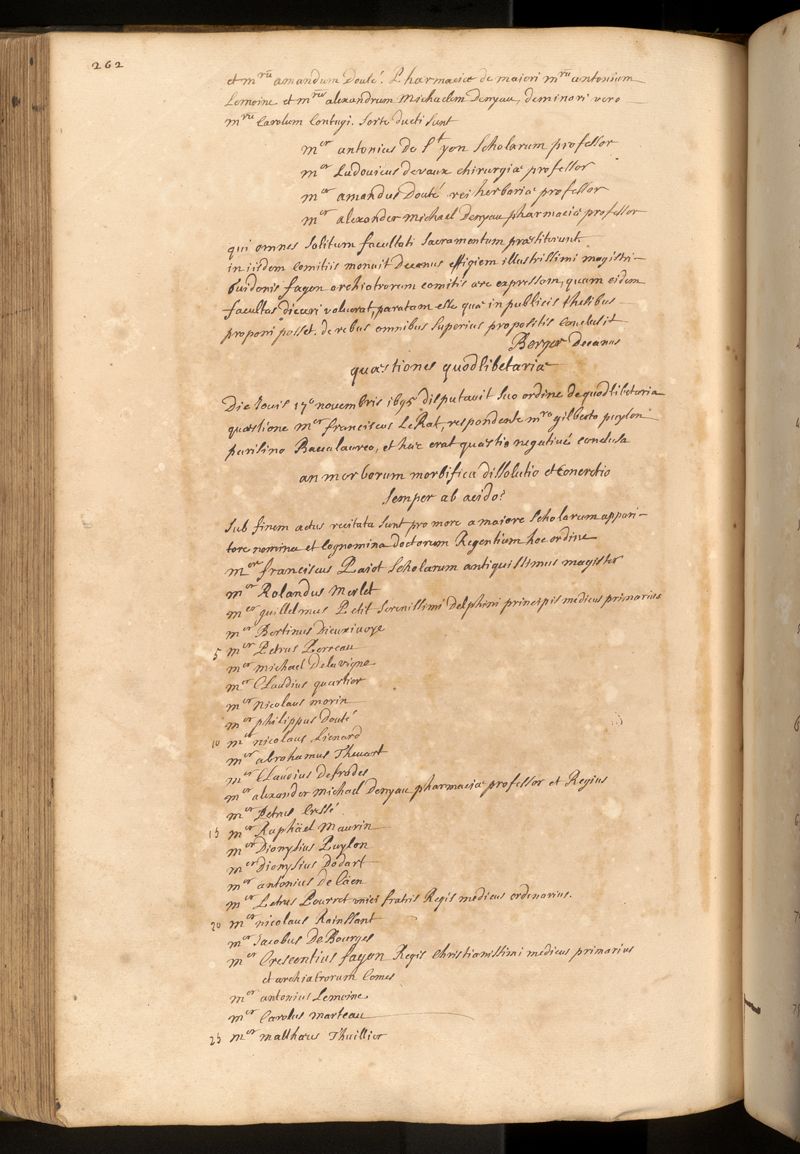 262
et mrũ amandum Douté. Pharmaciæ de maiori mrũ antonium
Lemoine et mrũ alexandrum Michaelem Denyau, de minori vero
mrũ Carolum Contugi. Sorte ducti sunt
mer antonius de St yon Scholarum professor
mer Ludovicus devaux chirurgiæ professor
mer amandus Douté rei herbariæ professor
mer alexander michael Denyau pharmaciæ professor
qui omnes solitum facultati Sacramentum præstiterunt.
in iisdem Comitiis monuit Decanus effigiem illustrissimi magistri
Guidonis fagon archiatrorum comitis ære expressam, quam eidem
facultas dicari voluerat, paratam esse quæ in publicis thesibus
proponi posset. de rebus omnibus superius propositis Conclusit
Berger Decanus
quæstiones quodlibetariæ
Die Jovis 17º novembris 1695 disputavit suo ordine de quodlibetaria
quæstione mer franciscus LeRat, respondente mro gilberto puylon
parisino Baccalaureo, et hæc erat quæstio negativè conclusa
an morborum morbifica dissolutio et Concretio
semper ab acido?
Sub finem actus recitata sunt pro more a maiore Scholarum appari-
tore nomina et Cognomina doctorum Regentium hoc ordine
mer franciscus Paiot Scholarum antiquissimus magister
mer Rolandus Merlet
mer guillelmus Petit Serenissimi Delphini principis medicus primarius
mer Bertinus Dieuxivoye
5 mer Petrus Perreau
mer michael Delavigne
mer Claudius quartier
mer Nicolaus morin
mer philippus Douté
10 mer nicolaus Lienard
mer abrahamus Theuart
mer Claudius Defrades
mer alexander michael Denyau pharmaciæ professor et Regius
mer Petrus Cressé
15 mer Raphäel Maurin
mer Dionysius Puylon
mer Dionysius Dodart
mer antonius De Caen
mer Petrus Pourret unici fratris Regis medicus ordinarius.
20 mer nicolaus Rainssant
mer Jacobus De Bourges
mer Crescentius fagon Regis Christianissimi medicus primarius
et archiatrorum Comes
mer antonius Lemoine
mer Carolus marteau
25 mer matthæus Thuillier